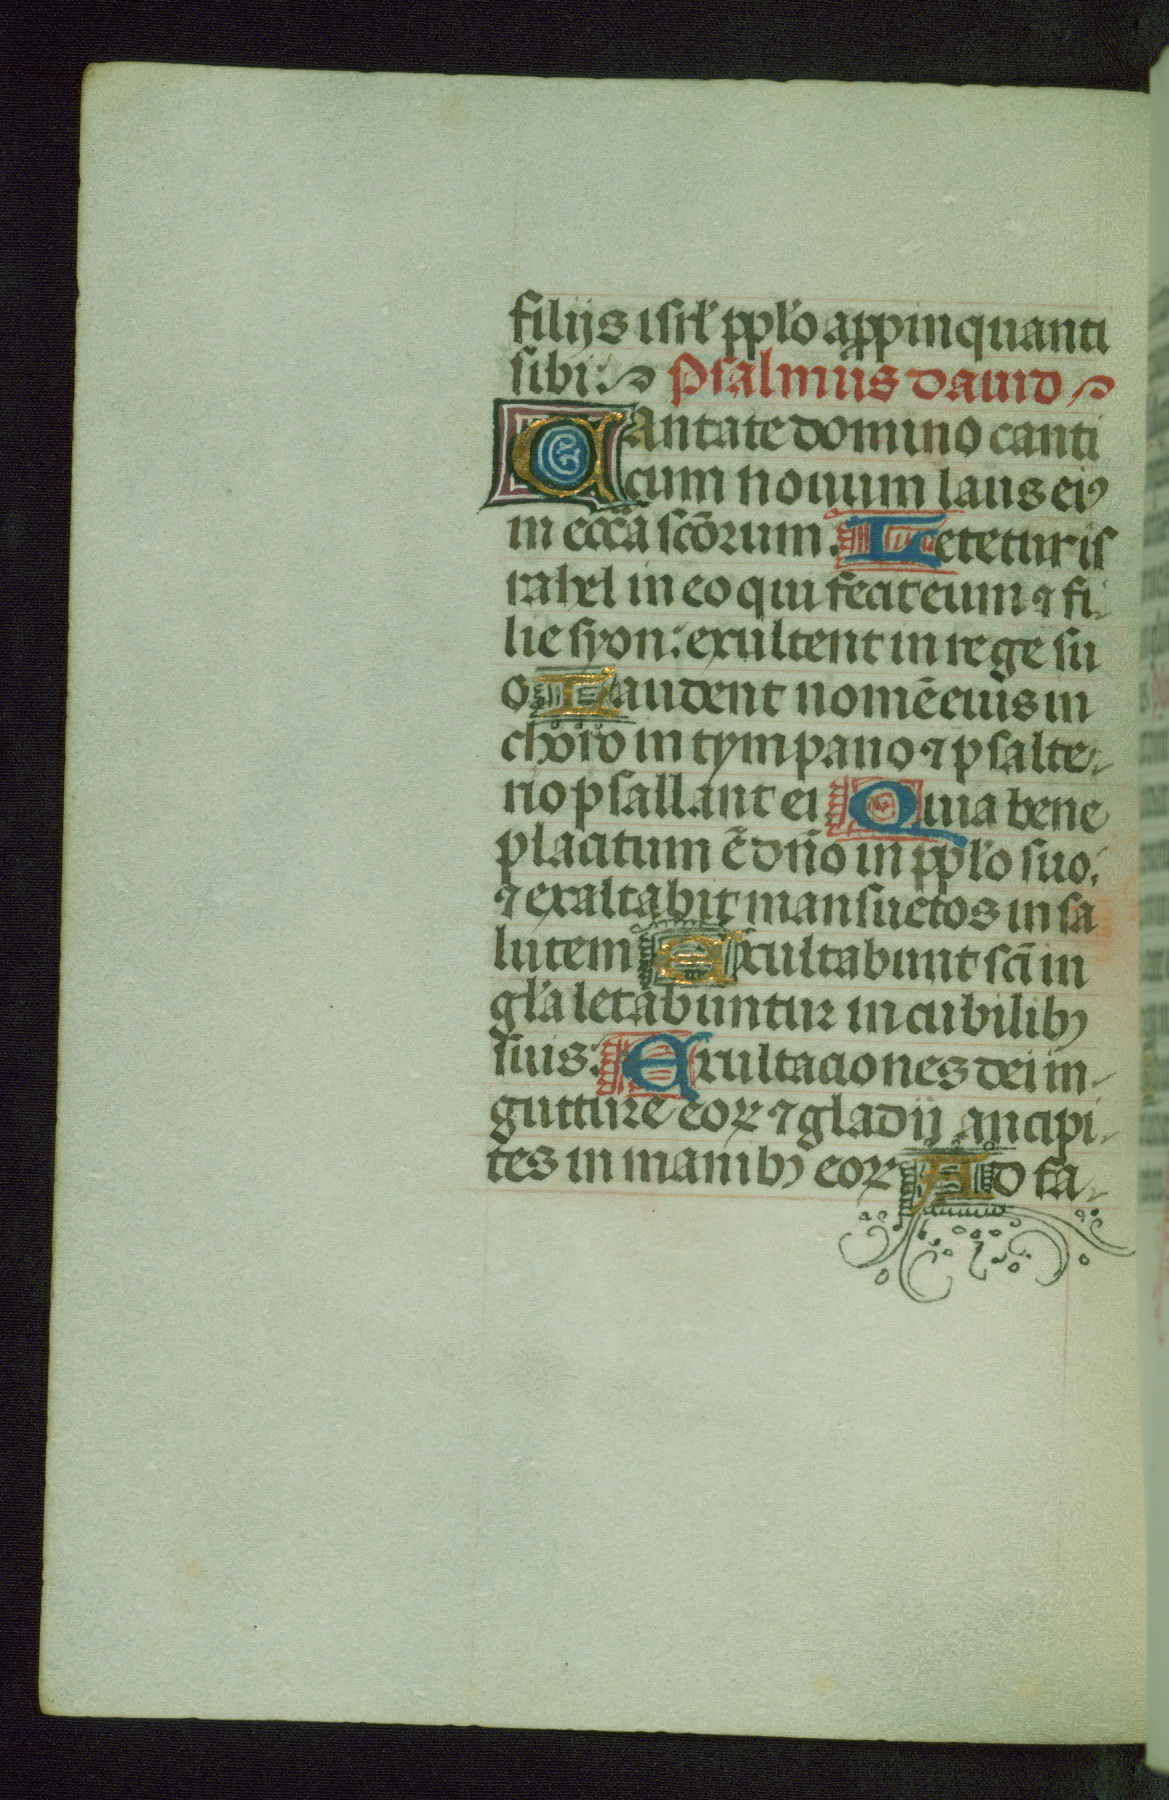 filijs isrl' ppl'o appinquanti
sibi: Psalmus dauid
Cantate domino canti
cum nouum laus ei9
in ecc̄a sc̄orum. Letetur is
rahel in eo qui fecit eum ⁊ fi
lie syon: exultent in rege su
o Laudent nomē eius in
choro in tympano ⁊ psalte
rio psallant ei Quia bene
placitum ē dn̄o in ppl'o suo:
⁊ exaltabit mansuetos in sa
lutem Exultabunt sc̄i in
gl'a letabuntur in cubilibꝫ
suis: Exultaciones dei in
gutture eoꝝ ⁊ gladij ancipi
tes in manibꝫ eoꝝ Ad fa